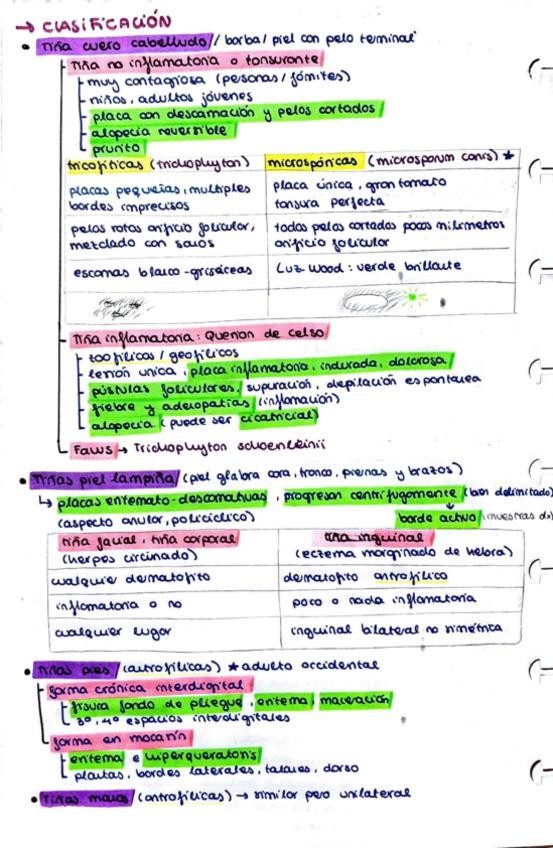 → CLASIFICACIÓN
• Tiña cuero cabelludo / barba / piel con pelo terminal
Tiña no inflamatoria o tonsurante
muy contagiosa (personas / fómites)
niños, adultos jóvenes
placa con descamación y pelos cortados
alopecia reversible
prurito
tricofíticas (trichophyton)
microspóricas (microsporum canis) *
placas pequeñas, multiples
bordes imprecisos
placa única, gran tamaño
tonsura perfecta
pelos rotos orificio folicular,
mezclado con sanos
todos pelos cortados pocos milímetros
orificio folicular
escamas blanco-grisáceas
Luz Wood: verde brillante
Tiña inflamatoria: Querion de celso
zoofílicos / geofílicos
lesión unica, placa inflamatoria, indurada, dolorosa
pústulas foliculares, supuración, depilación espontanea
fiebre y adenopatías (inflamación)
alopecia (puede ser cicatricial)
Favus → Trichophyton schoenleinii
• Tiñas piel lampiña (piel glabra cara, tronco, piernas y brazos)
↳ placas eritemato-descamativas, progresan centrifugamente (bien delimitado)
(aspecto anular, policiclico)
borde activo (muestras
tiña facial, tiña corporal
(herpes circinado)
tiña inguinal
(eczema marginado de hebra)
cualquier dermatofito
dermatofito antrofílico
inflamatoria o no
poco o nada inflamatoria
cualquier lugar
inguinal bilateral no simétrica
• Tiñas pies (antrofílicas) * adulto occidental
forma crónica interdigital
fisura fondo de pliegue, eritema, maceración
3º, 4º espacios interdigitales
forma en mocasín
eritema e hiperqueratosis
plantas, bordes laterales, talones, dorso
• Tiñas manos (antrofílicas) → similar pero unilateral